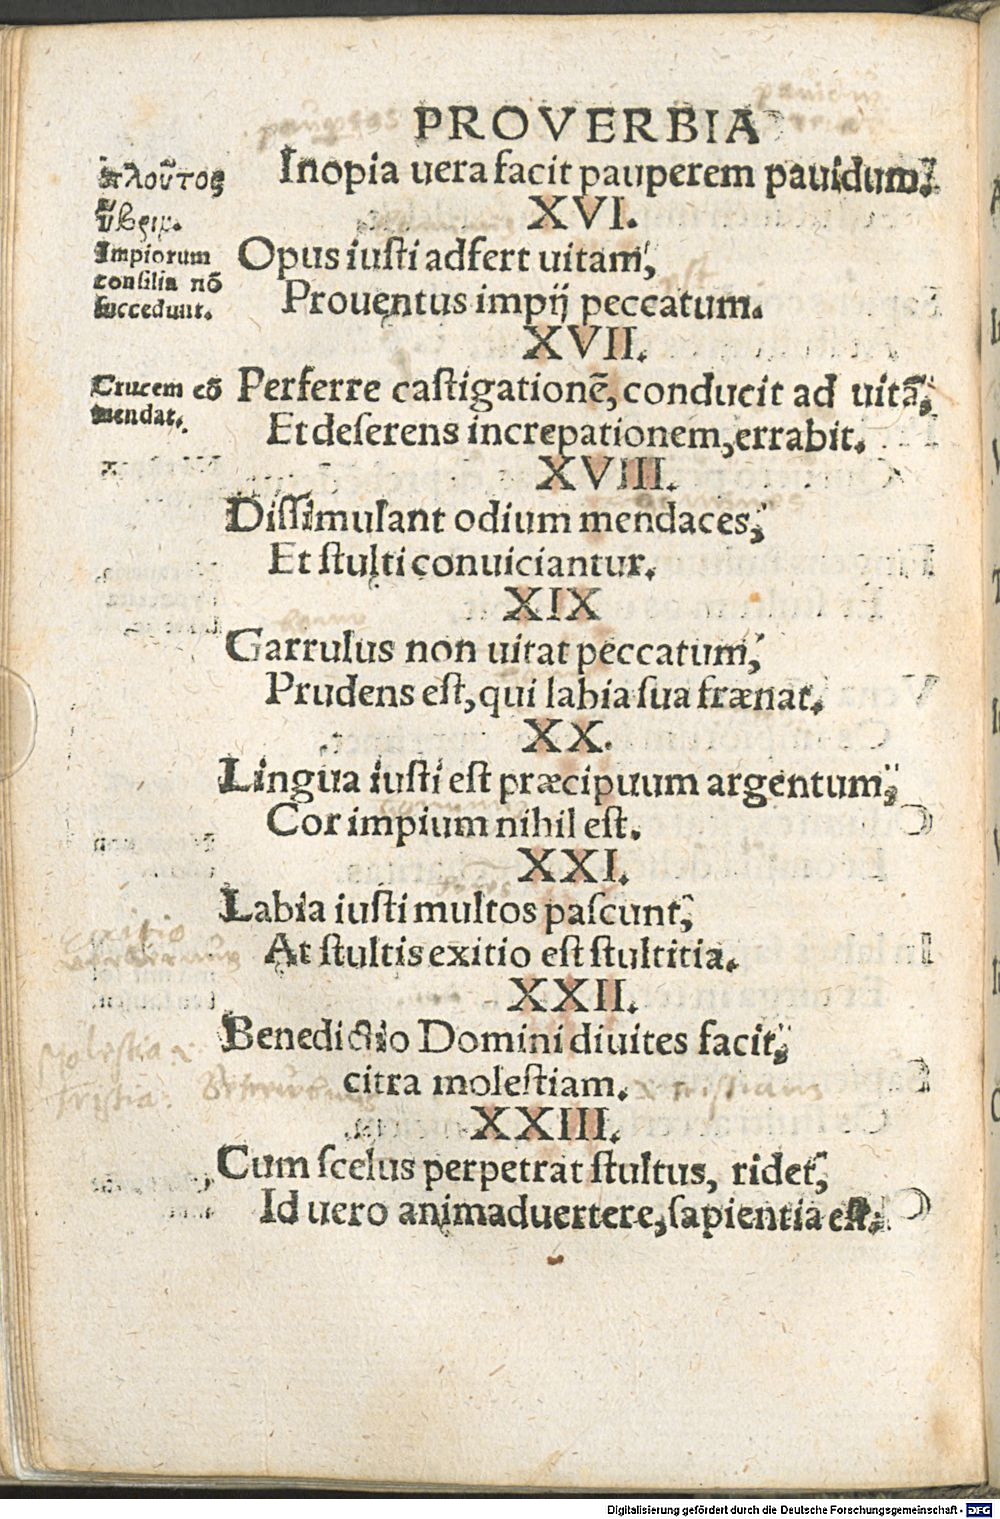 PROVERBIA
πλοῦτος
Inopia uera facit pauperem pauidum.
XVI.
Impiorum
consilia nō
succedunt.
Opus iusti adfert uitam,
Prouentus impij peccatum.
XVII.
Crucem cō
mendat.
Perferre castigationē, conducit ad uitā,
Et deserens increpationem, errabit.
XVIII.
Dissimulant odium mendaces,
Et stulti conuiciantur.
XIX
Garrulus non uitat peccatum,
Prudens est, qui labia sua frænat.
XX.
Lingua iusti est præcipuum argentum,
Cor impium nihil est.
XXI.
Labia iusti multos pascunt,
At stultis exitio est stultitia.
XXII.
Benedictio Domini diuites facit,
citra molestiam.
molestia
tristia
XXIII.
Cum scelus perpetrat stultus, ridet,
Id uero animaduertere, sapientia est.
Digitalisierung gefördert durch die Deutsche Forschungsgemeinschaft - DFG